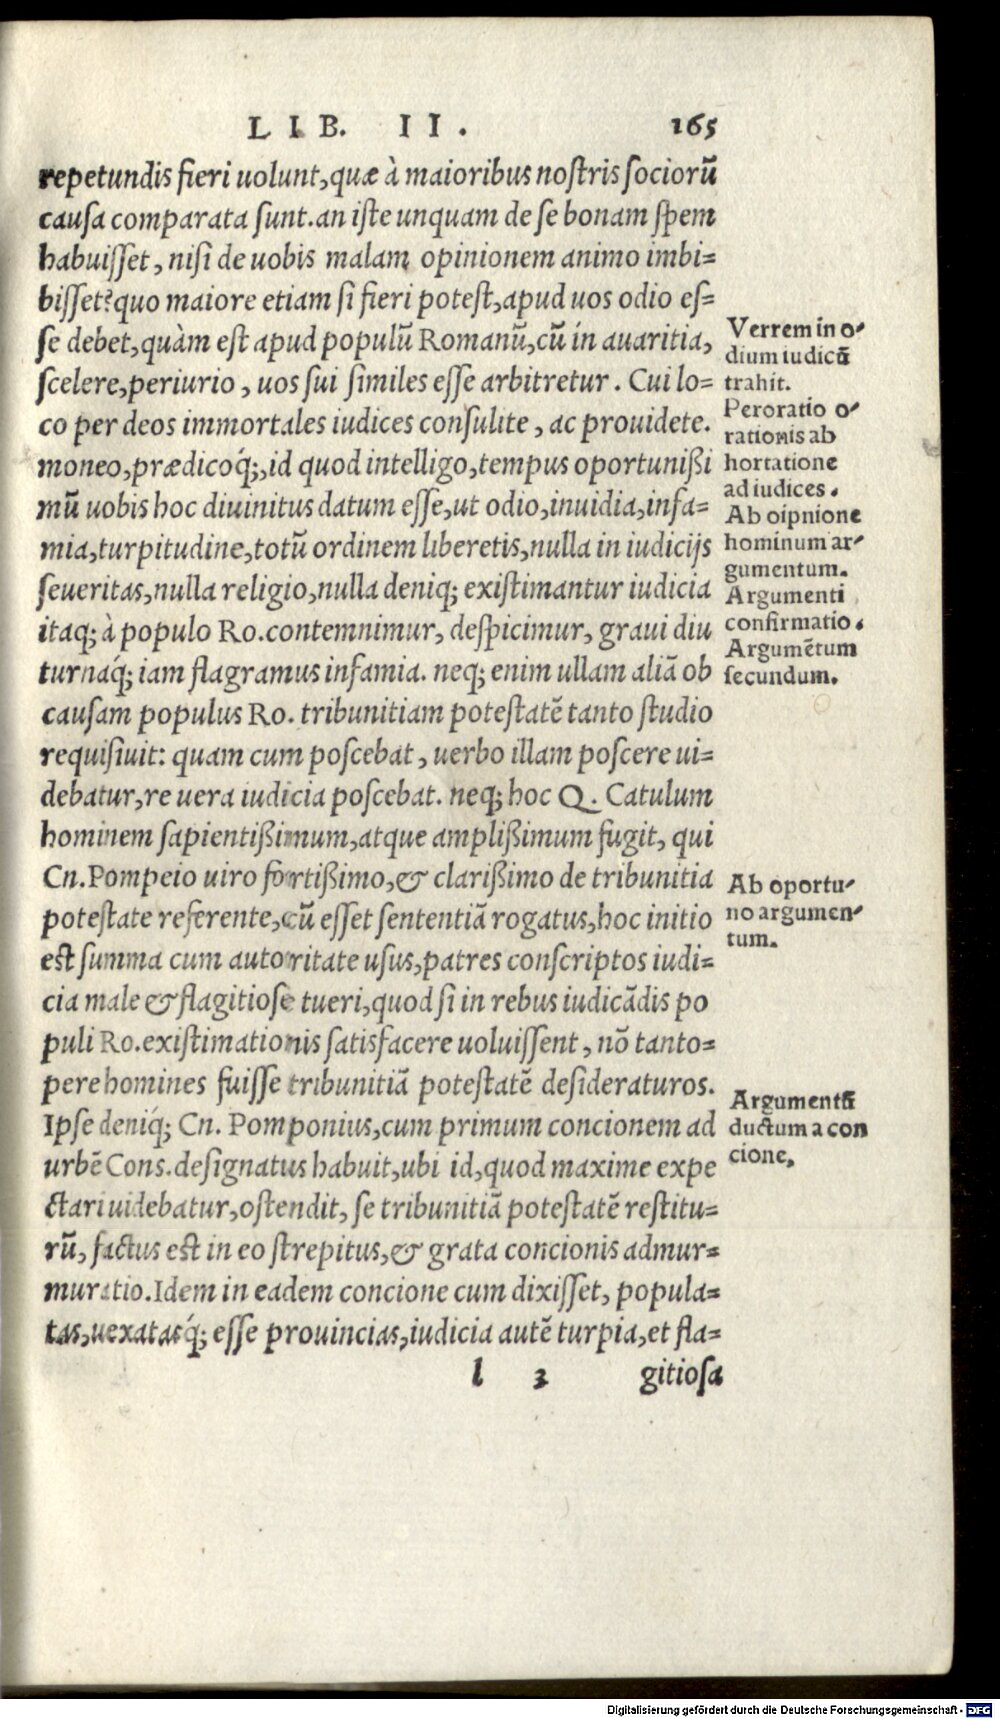 LIB. II. 165
repetundis fieri uolunt, quæ à maioribus nostris sociorũ
causa comparata sunt. an iste unquam de se bonam spem
habuisset, nisi de uobis malam opinionem animo imbi=
bisset? quo maiore etiam si fieri potest, apud uos odio es=
se debet, quàm est apud populũ Romanũ, cũ in auaritia,
scelere, periurio, uos sui similes esse arbitretur. Cui lo=
co per deos immortales iudices consulite, ac prouidete.
moneo, prædicoq́;, id quod intelligo, tempus oportunißi
mũ uobis hoc diuinitus datum esse, ut odio, inuidia, infa=
mia, turpitudine, totũ ordinem liberetis, nulla in iudicijs
seueritas, nulla religio, nulla deniq; existimantur iudicia
itaq; à populo Ro. contemnimur, despicimur, graui diu
turnaq́; iam flagramus infamia. neq; enim ullam aliã ob
causam populus Ro. tribunitiam potestatẽ tanto studio
requisiuit: quam cum poscebat, uerbo illam poscere ui=
debatur, re uera iudicia poscebat. neq; hoc Q. Catulum
hominem sapientißimum, atque amplißimum fugit, qui
Cn. Pompeio uiro fortißimo, & clarißimo de tribunitia
potestate referente, cũ esset sententiã rogatus, hoc initio
est summa cum autoritate usus, patres conscriptos iudi=
cia male & flagitiose tueri, quod si in rebus iudicãdis po
puli Ro. existimationis satisfacere uoluissent, nõ tanto=
pere homines fuisse tribunitiã potestatẽ desideraturos.
Ipse deniq́; Cn. Pomponius, cum primum concionem ad
urbẽ Cons. designatus habuit, ubi id, quod maxime expe
ctari uidebatur, ostendit, se tribunitiã potestatẽ restitu=
rũ, factus est in eo strepitus, & grata concionis admur=
muratio. Idem in eadem concione cum dixisset, popula=
tas, uexatasq́; esse prouincias, iudicia autẽ turpia, et fla=
l 3 gitiosa
Verrem in o-
dium iudicũ
trahit.
Peroratio o-
rationis ab
hortatione
ad iudices.
Ab oipnione
hominum ar-
gumentum.
Argumenti
confirmatio.
Argumẽtum
secundum.
Ab oportu-
no argumen-
tum.
Argumentũ
ductum a con
cione,
Digitalisierung gefördert durch die Deutsche Forschungsgemeinschaft - DFG